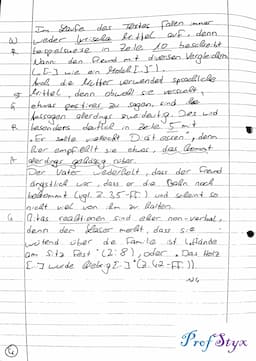 Im Laufe des Textes fallen immer
W wieder sprachliche Mittel auf, denn
R beispielsweise in Zeile 10 beschreibt
Mann den Freund mit diesen Vergleichen
([...] wie ein [...]).
Auch die Mutter verwendet sprachliche
Mittel, denn obwohl sie versucht,
G etwas positives zu sagen, sind die
Aussagen allerdings zweideutig. Das wird
R besonders deutlich in Zeile 5 mit
"Er sollte vielleicht Diät essen", denn
hier empfiehlt sie etwas, das kommt
A allerdings gehässig rüber.
Der Vater wiederholt, dass der Freund
ängstlich war, dass er die Bahn noch
bekommt (vgl. Z. 35 ff.) und scheint so
nicht viel von ihm zu halten.
G Ritas reaktionen sind eher non-verbal,
denn der Leser merkt, dass sie
wütend über die Familie ist "Hände
am Sitz fest" (Z. 8), oder "Das Herz
[...] wurde [...]" (Z. 42 ff.).
4
ProfStyx